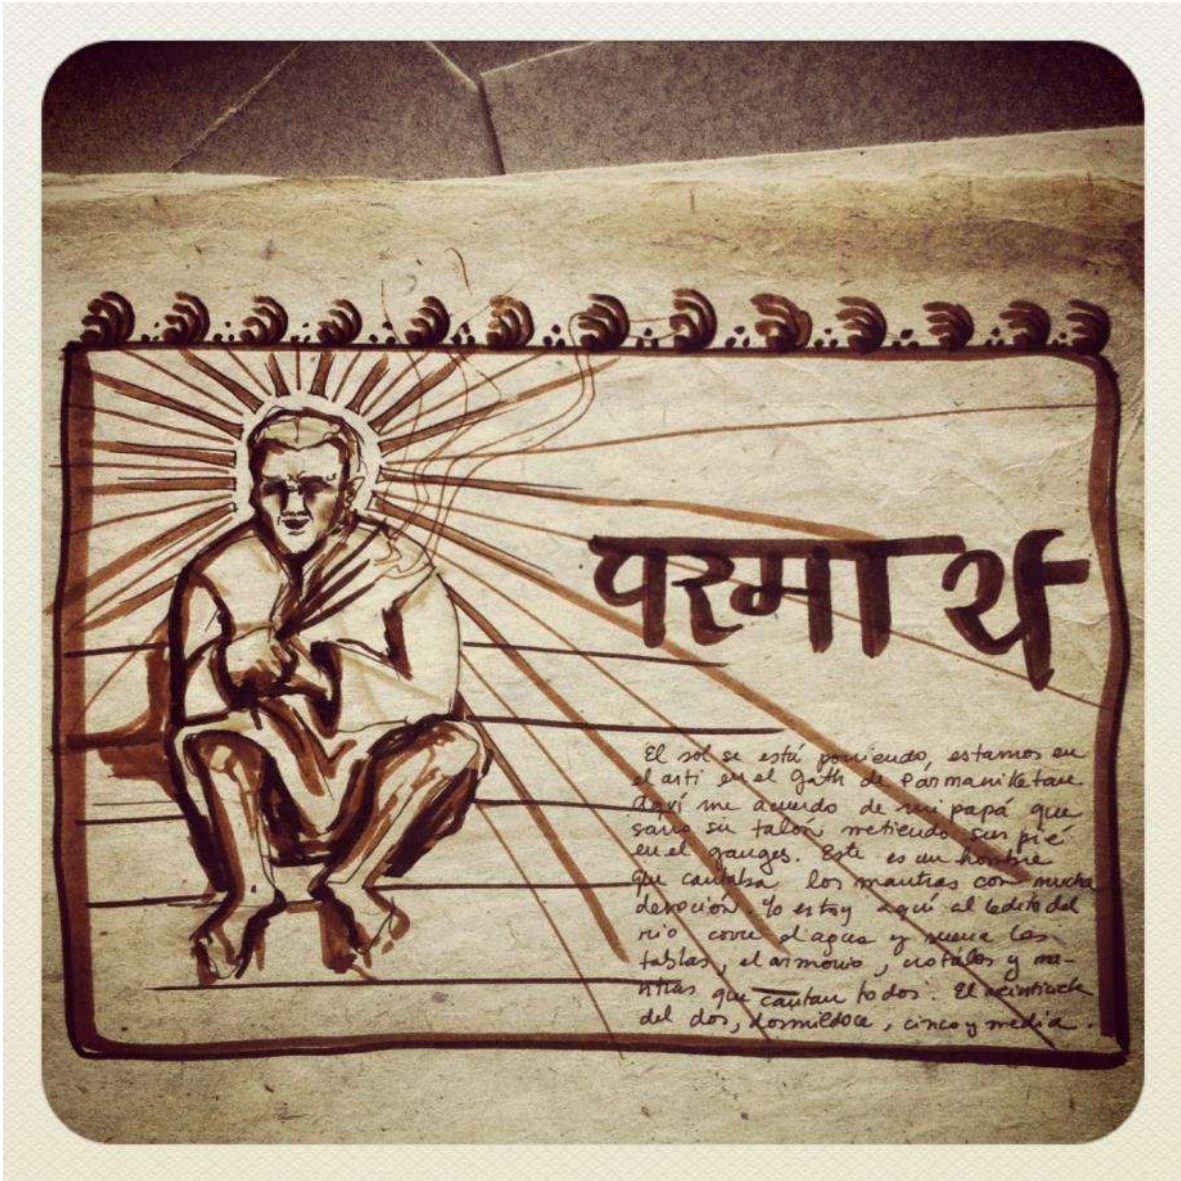 परमार्थ
El sol se está poniendo, estamos en
el arti en el gath de Parmaniketan
Aquí me acuerdo de mi papá que
sano su talón metiendo sus pié
en el ganges. Este es un hombre
que cantaba los mantras con mucha
devoción. Yo estoy aquí al ladito del
rio corre el agua y suena las
tablas, el armonio, crotalos y ma-
ntras que cantan todos. El veintisiete
del dos, dosmildoce, cinco y media.